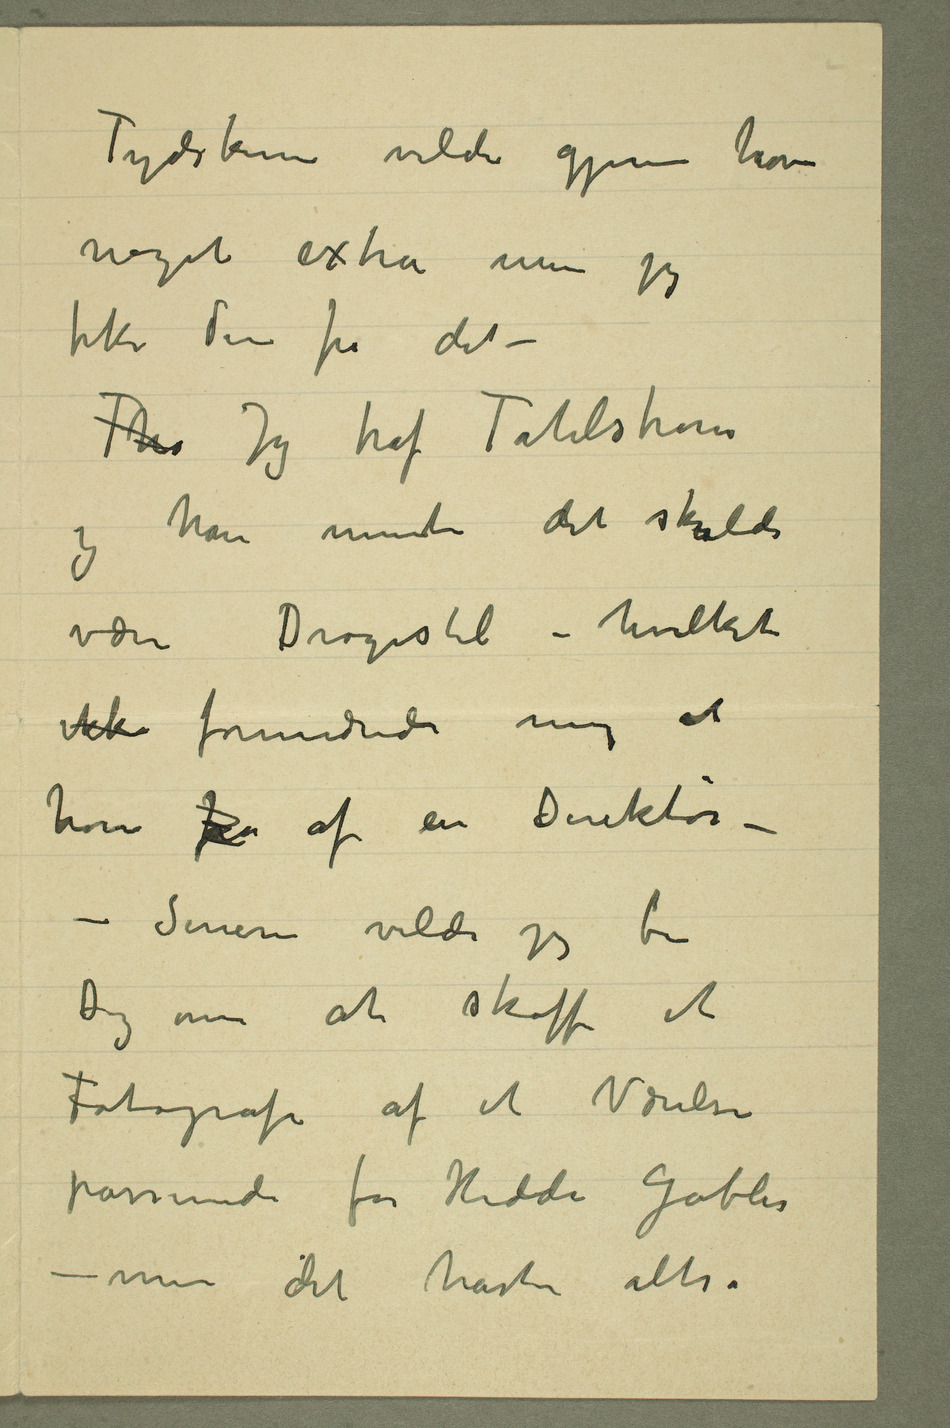 Tydskerne vilde gjerne have
noget extra men jeg
fik dem fra det –
Tho Jeg traf Tahlstrøm
og han mente det skulde
være Dragestil – hvilket
ikke forundrede mig at
høre fra af en Direktör –
– Senere vilde jeg be
Dig om at skaffe et
Fotografi af et Værelse
passende for Hedda Gabler
– men det haster altså